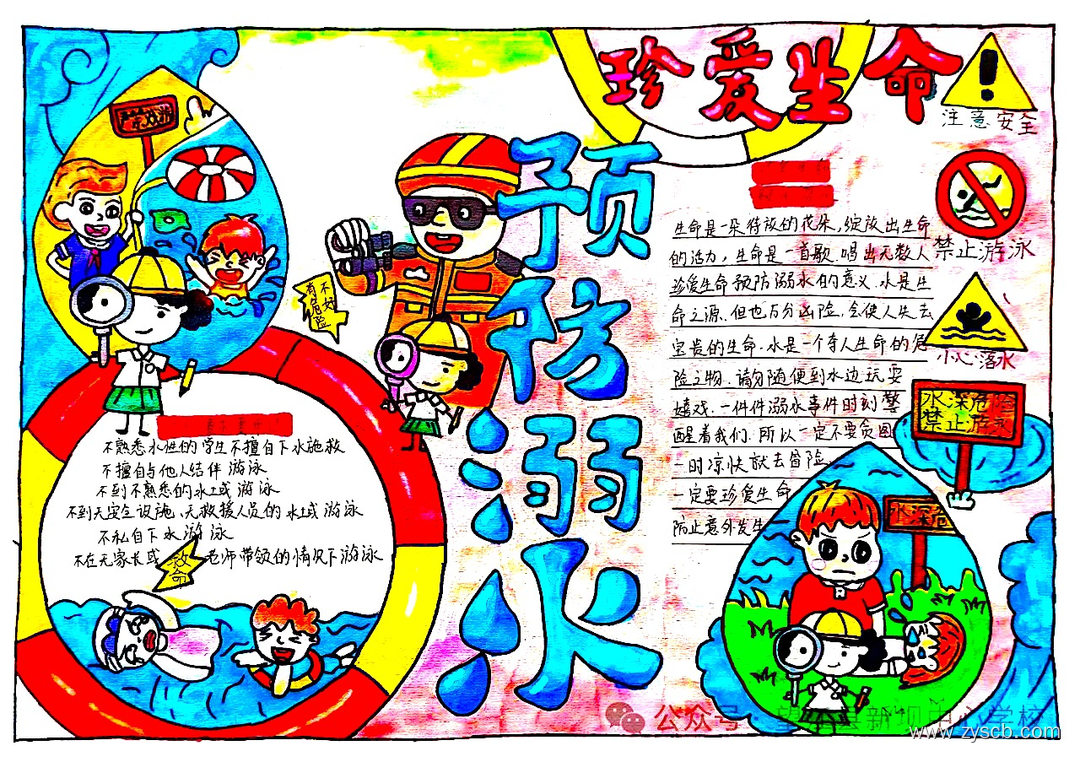 珍爱生命
注意安全
预防溺水
禁止游泳
小心落水
水深危险
禁止游泳
有危险
不好
生命是一朵待放的花朵,绽放出生命
的活力,生命是一首歌.唱出无数人
珍爱生命预防溺水的意义.水是生
命之源.但也万分凶险,会使人失去
宝贵的生命.水是一个夺人生命的危
险之物.请勿随便到水边玩耍
嬉戏.一件件溺水事件时刻警
醒着我们.所以一定不要贪图
一时凉快就去冒险
一定要珍爱生命
防止意外发生
不熟悉水性的学生不擅自下水施救
不擅自与他人结伴游泳
不到不熟悉的水域游泳
不到无安全设施、无救援人员的水域游泳
不私自下水游泳
不在无家长或老师带领的情况下游泳
救命
水深危
公众号
新坝中心学校
www.zyscb.com